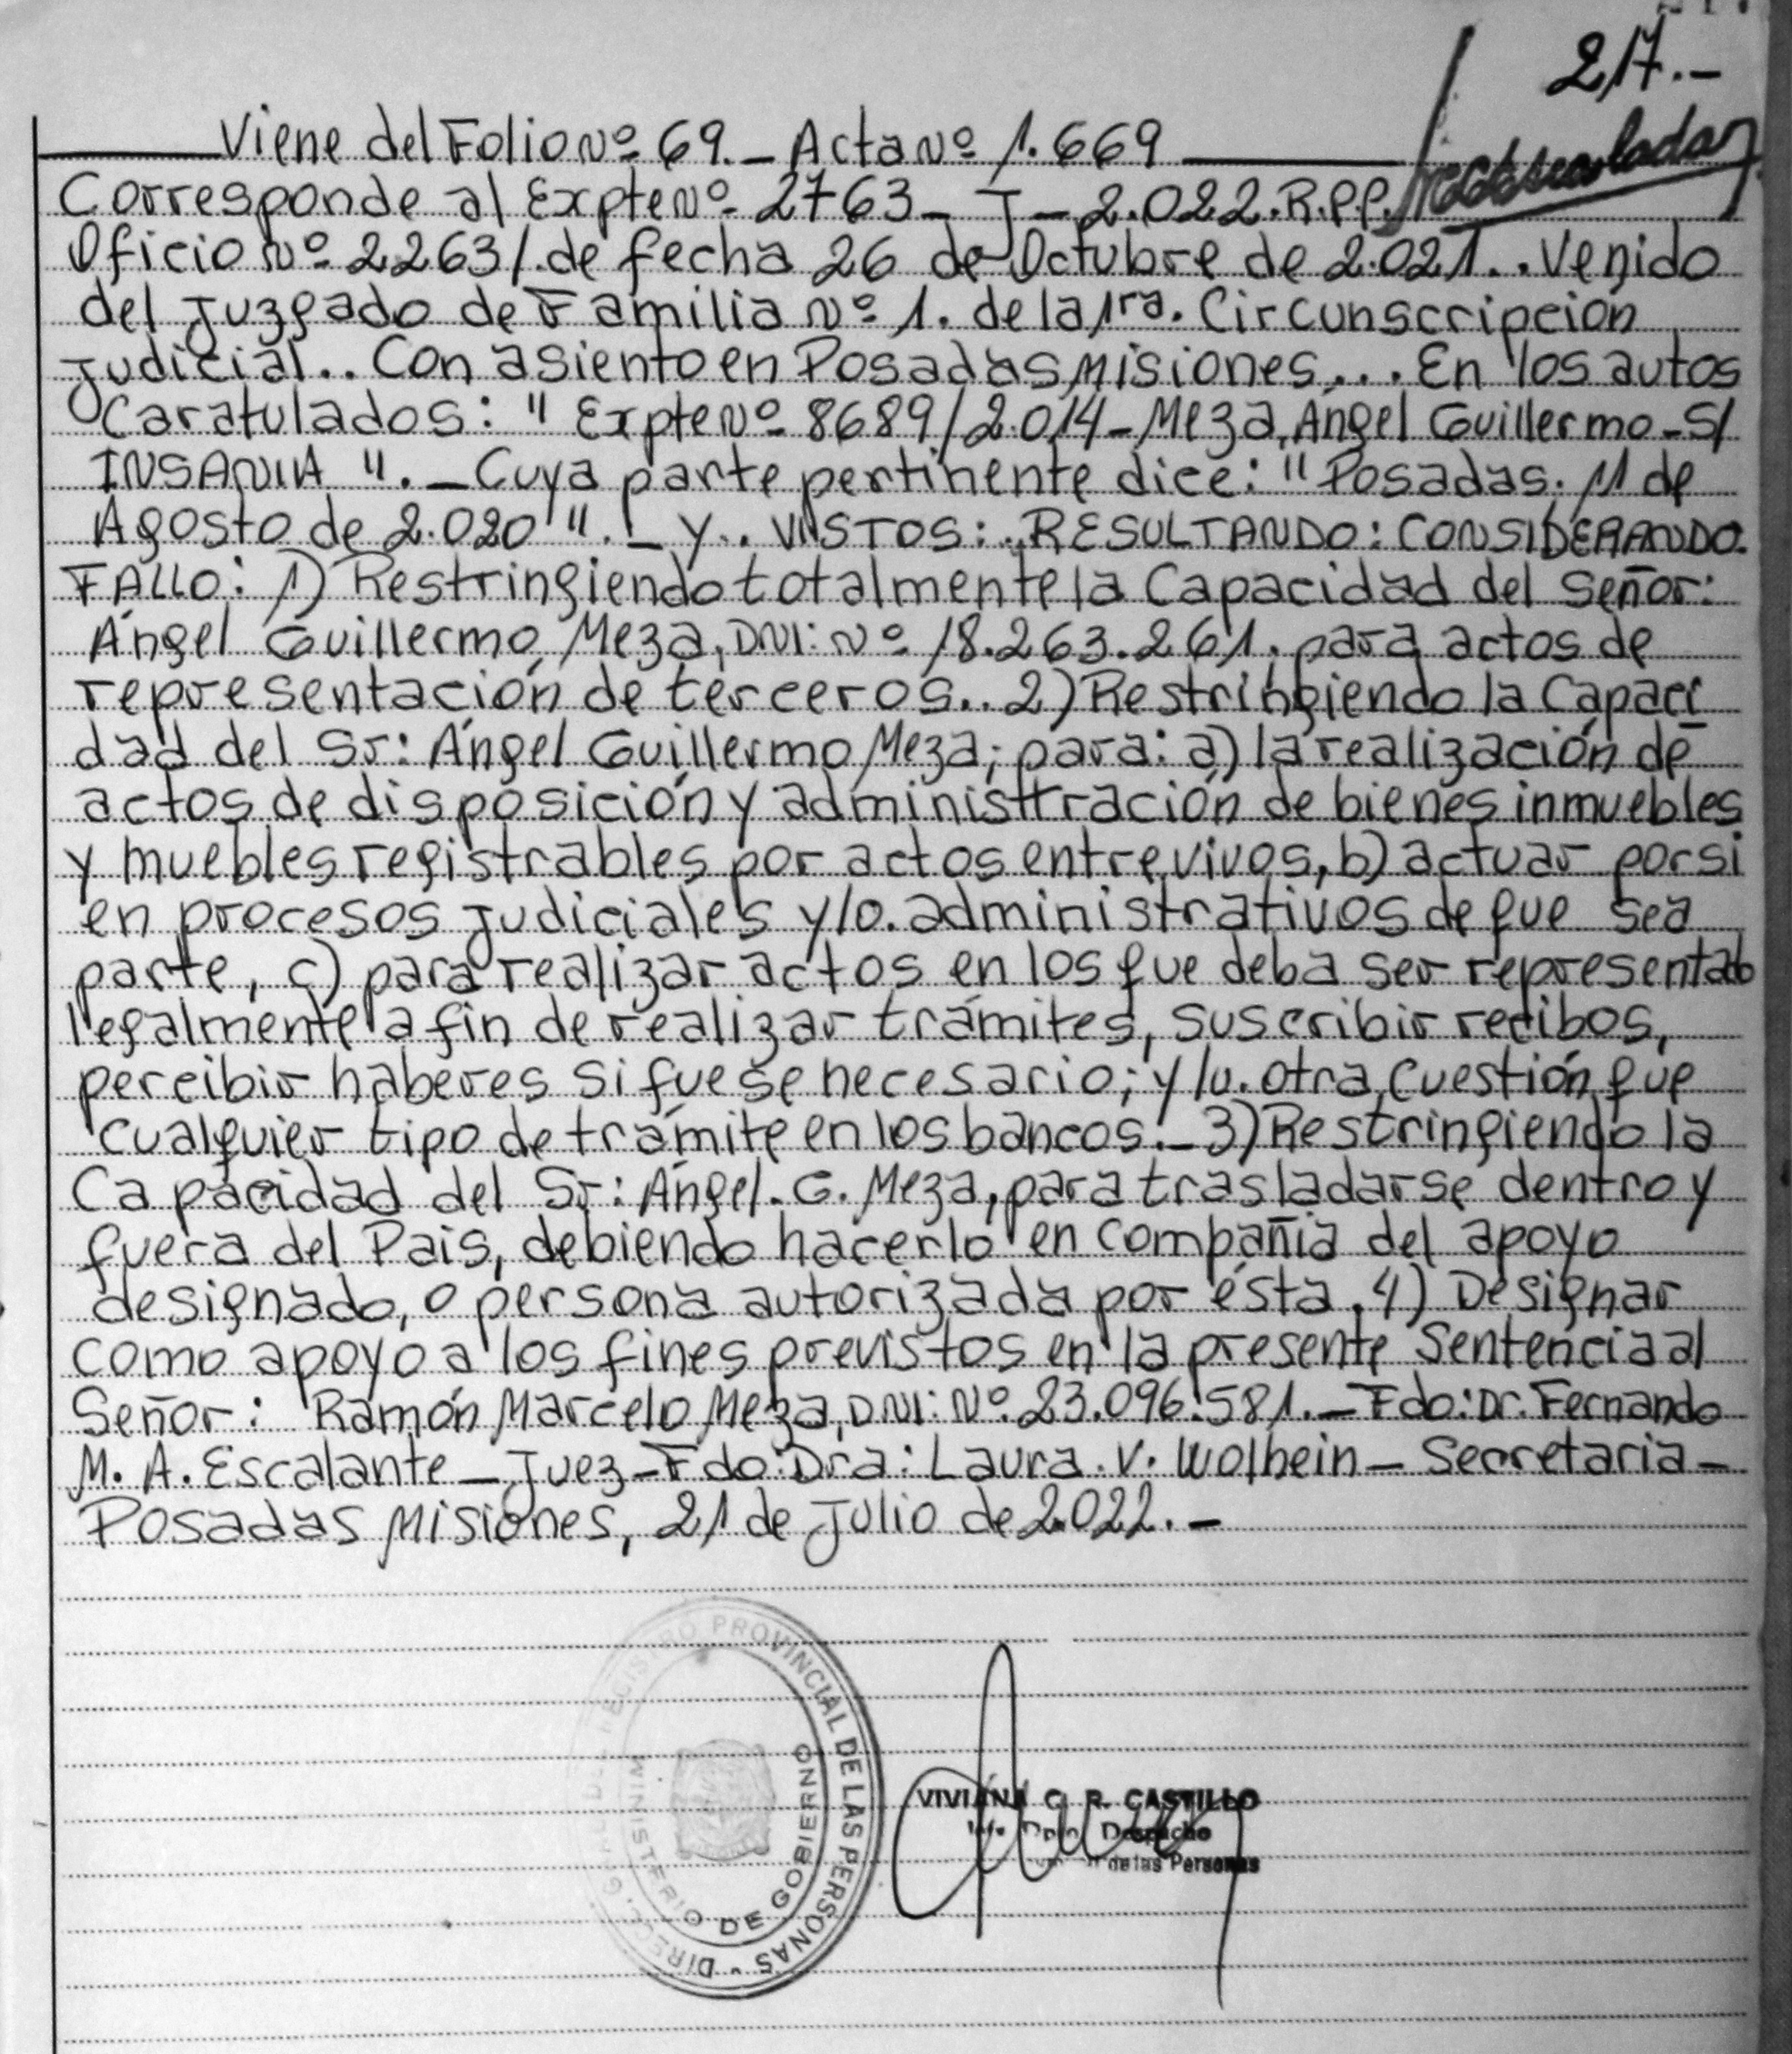 217.-
Viene del Folio Nº 69.- Acta Nº 1.669
Corresponde al Expte Nº 2763- J- 2.022.R.P.P.
Oficio Nº 2263/.de fecha 26 de Octubre de 2.021.. Venido
del Juzgado de Familia Nº 1. de la 1ra. Circunscripcion
Judicial.. Con asiento en Posadas Misiones... En los autos
Caratulados: " Expte Nº 8689/2.014- Meza, Ángel Guillermo - S/
INSANIA ". - Cuya parte pertinente dice: " Posadas. 11 de
Agosto de 2.020 ". - Y.. VISTOS: . RESULTANDO: CONSIDERANDO.
FALLO: 1) Restringiendo totalmente la Capacidad del Señor:
Ángel Guillermo Meza, DNI: Nº 18.263.261. para actos de
representación de terceros.. 2) Restringiendo la Capaci
dad del Sr: Ángel Guillermo Meza; para: a) la realización de
actos de disposición y administración de bienes inmuebles
y muebles registrables por actos entre vivos, b) actuar por si
en procesos judiciales y/o. administrativos de que sea
parte, c) para realizar actos en los que deba ser representado
legalmente a fin de realizar trámites, suscribir recibos,
percibir haberes si fuese necesario; y/u. otra cuestión que
cualquier tipo de trámite en los bancos.- 3) Restringiendo la
Capacidad del Sr: Ángel. G. Meza, para trasladarse dentro y
fuera del Pais, debiendo hacerlo en compañia del apoyo
designado, o persona autorizada por ésta. 4) Designar
como apoyo a los fines previstos en la presente Sentencia al
Señor: Ramón Marcelo Meza, DNI: Nº 23.096.581.- Fdo: Dr. Fernando
M. A. Escalante - Juez - Fdo: Dra: Laura. V. Wolhein - Secretaria -
Posadas Misiones, 21 de Julio de 2.022. -
REGISTRO PROVINCIAL DE LAS PERSONAS -
MINISTERIO DE GOBIERNO
VIVIANA C. R. CASTILLO
Dpto. Despacho
de las Personas